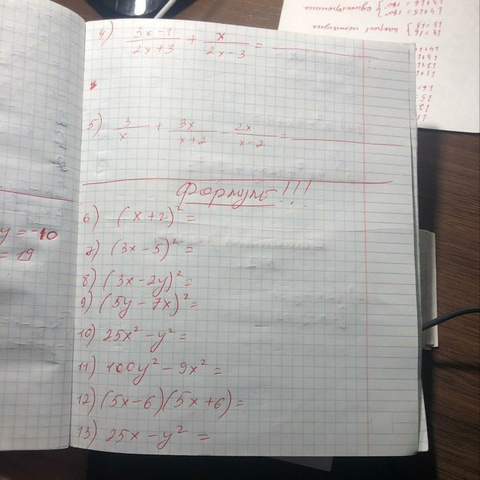 4) (3x-1)/(2x+3) + x/(2x-3) =
5) 3/x + 3x/(x+2) - 2x/(x-2) =
Формулы!!!
6) (x+2)² =
7) (3x-5)² =
8) (3x-2y)² =
9) (5y-7x)² =
10) 25x² - y² =
11) 100y² - 9x² =
12) (5x-6)(5x+6) =
13) 25x - y² =
y = -10
= 19